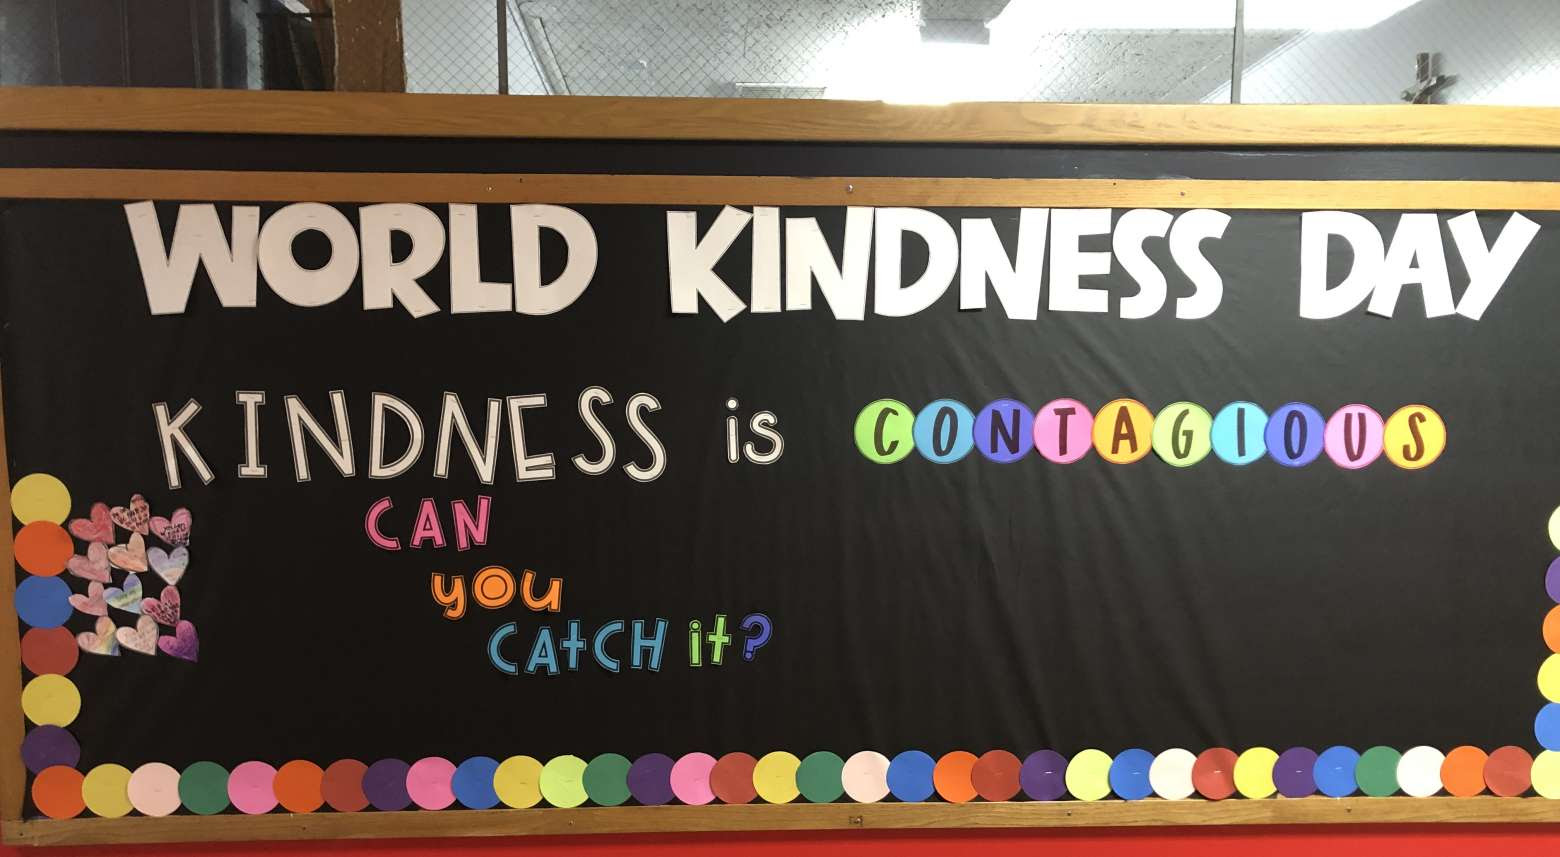 WORLD KINDNESS DAY
KINDNESS is CONTAGIOUS
CAN
you
CAtCH it?